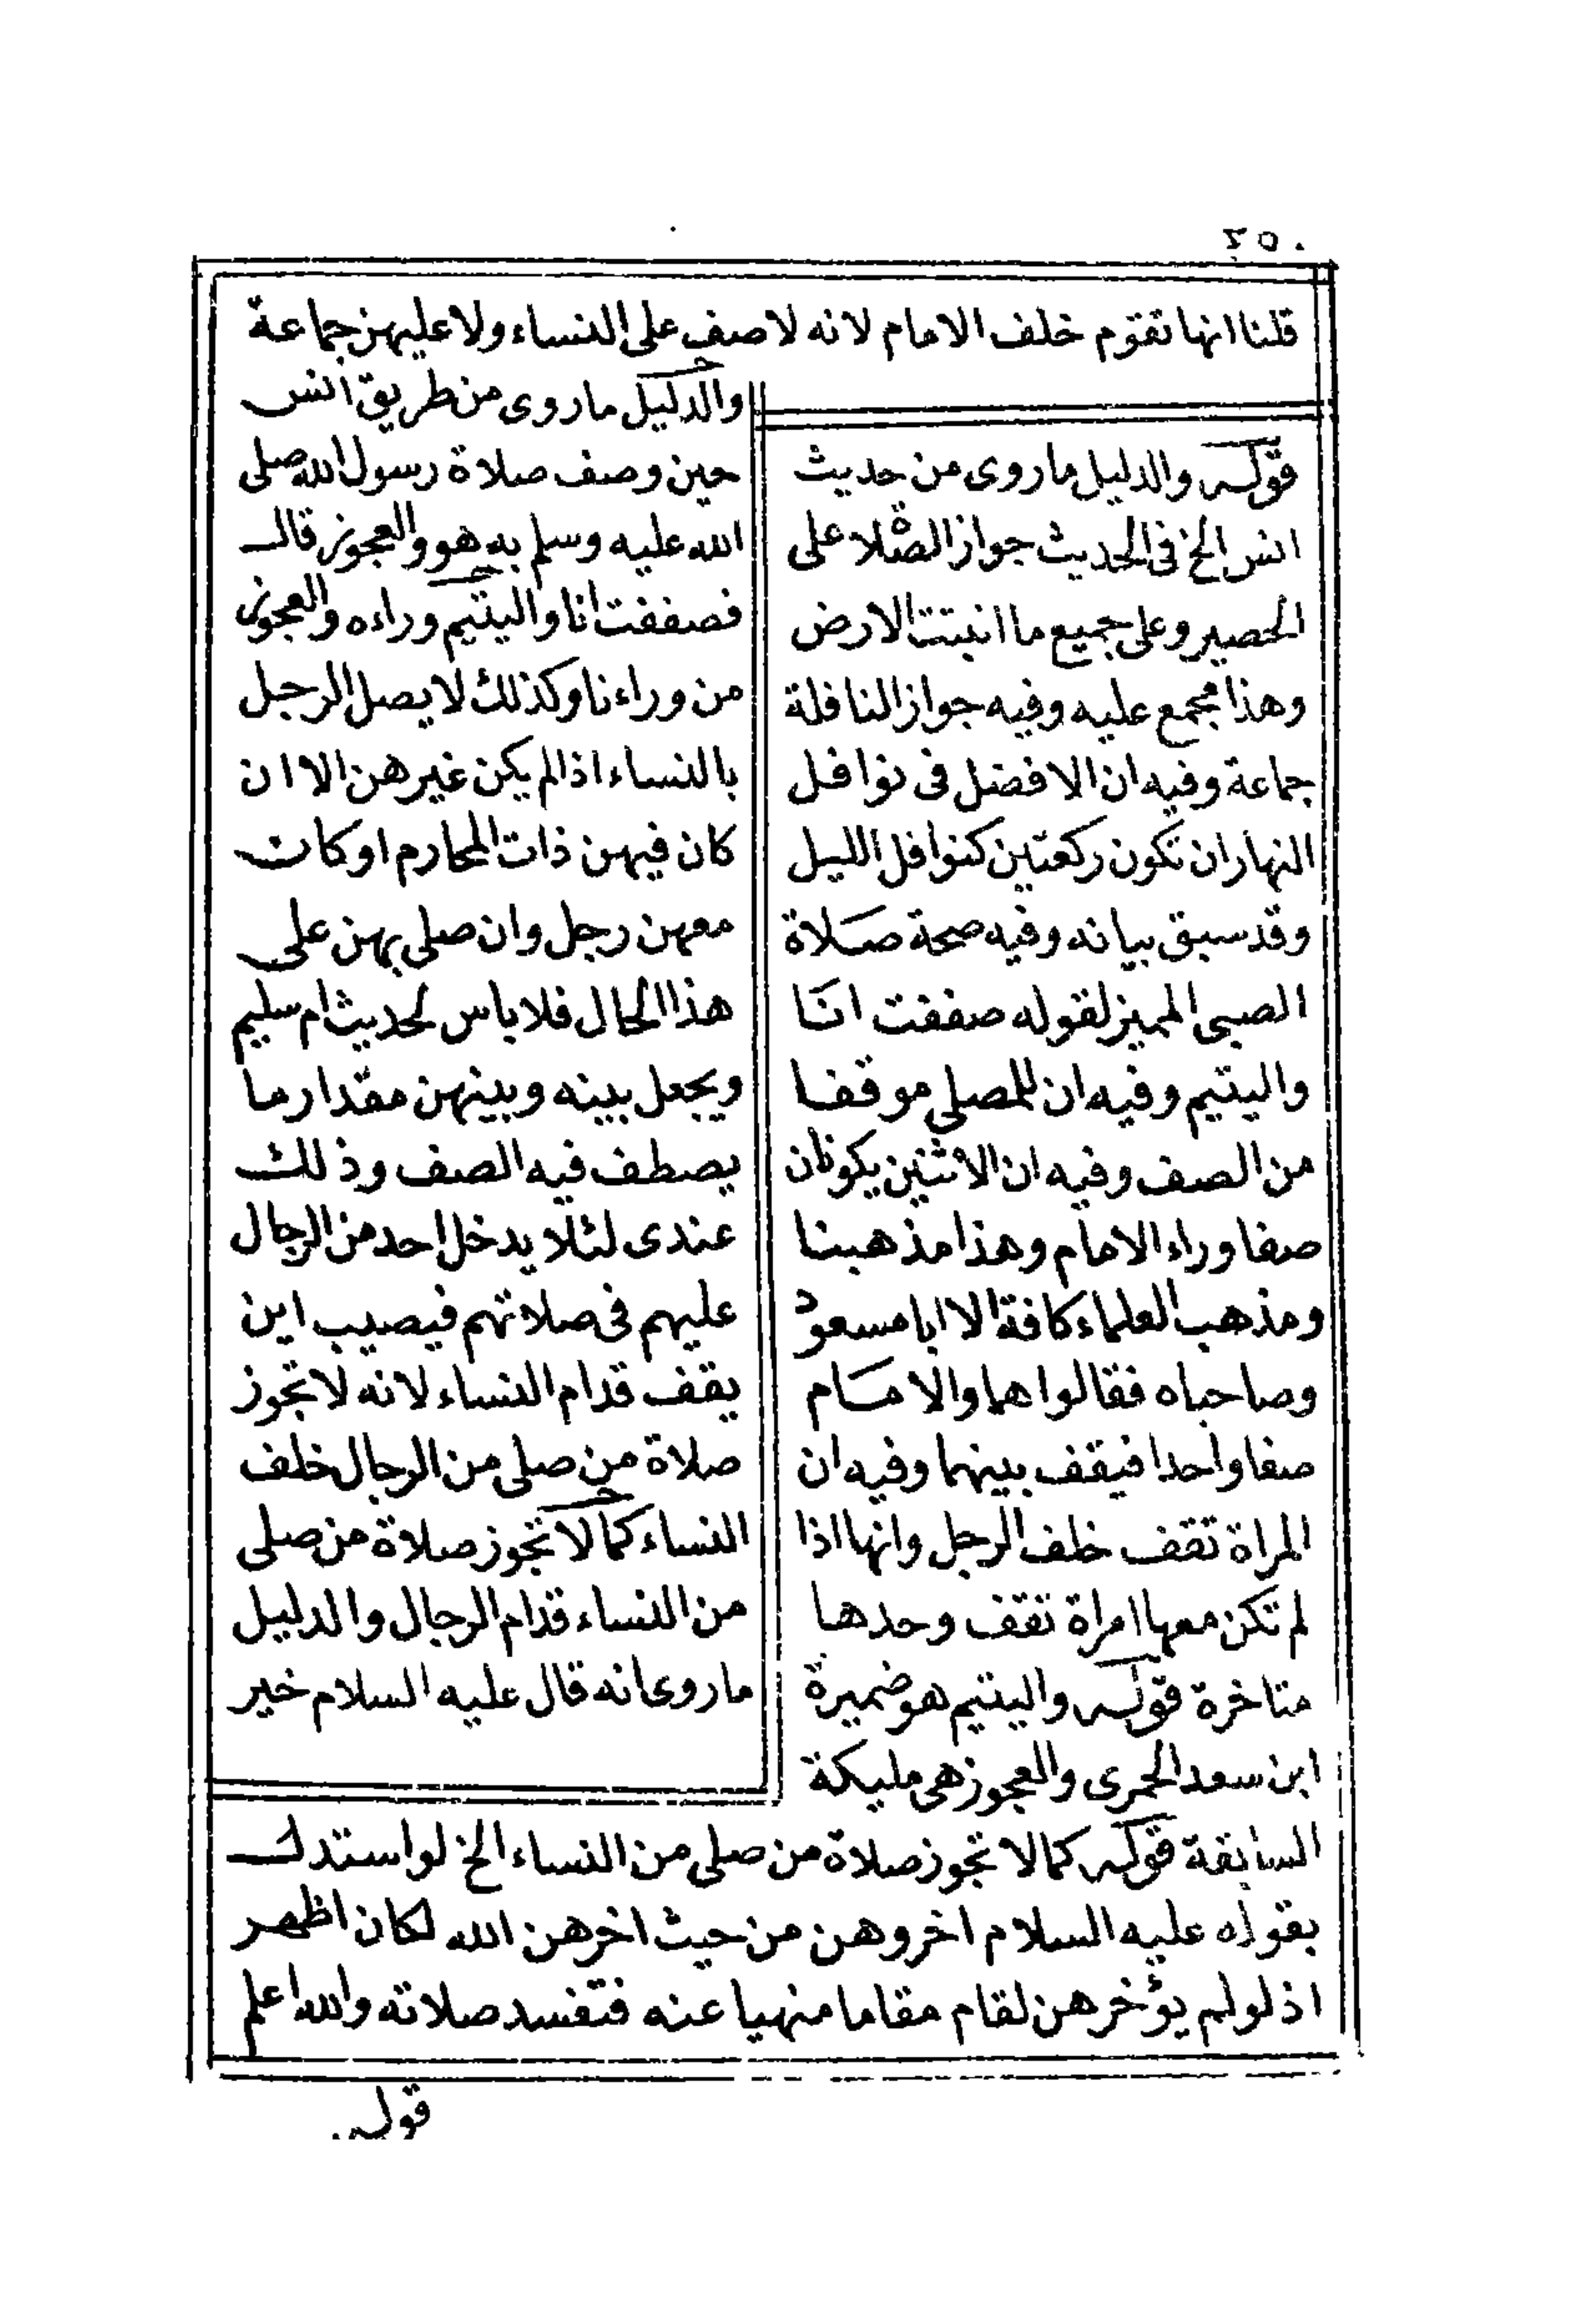 ٢٥٠
قلنا انها تقوم خلف الامام لانه لا صف على النساء ولا عليهن جماعة
والدليل ما روى من طريق انس
حين وصف صلاة رسول الله صلى
الله عليه وسلم به هو والعجوز قال
فصففت انا واليتيم وراءه والعجوز
من وراءنا وكذلك لا يصل الرجل
بالنساء اذا لم يكن غيرهن الا ان
كان فيهن ذات المحارم او كان
معهن رجل وان صلى بهن على
هذا الحال فلا باس لحديث ام سليم
ويجعل بينه وبينهن مقدار ما
يصطف فيه الصف وذلك
عندى لئلا يدخل احد من الرجال
عليهم فى صلاتهم فيصيب اين
يقف قدام النساء لانه لا تجوز
صلاة من صلى من الرجال خلف
النساء كما لا تجوز صلاة من صلى
من النساء قدام الرجال والدليل
ما روى انه قال عليه السلام خير
قوله والدليل ما روى من حديث
انس الخ فى الحديث جواز الصلاة على
الحصير وعلى جميع ما انبتت الارض
وهذا مجمع عليه وفيه جواز النافلة
جماعة وفيه ان الافضل فى نوافل
النهار ان تكون ركعتين كنوافل الليل
وقد سبق بيانه وفيه صحة صلاة
الصبى المميز لقوله صففت انا
واليتيم وفيه ان للمصلى موقفا
من الصف وفيه ان الاثنين يكونان
صفا وراء الامام وهذا مذهبنا
ومذهب العلماء كافة الا ابا مسعود
وصاحباه فقالوا هما والامام
صفا واحدا فيقف بينهما وفيه ان
المراة تقف خلف الرجل وانها اذا
لم تكن معها امراة تقف وحدها
متاخرة قوله واليتيم هو ضميرة
ابن سعد الحمرى والعجوز هى مليكة
السابقة قوله كما لا تجوز صلاة من صلى من النساء الخ لو استدل
بقوله عليه السلام اخروهن من حيث اخرهن الله لكان اظهر
اذ لو لم يؤخرهن لقام مقاما منهيا عنه فتفسد صلاته والله اعلم
قوله